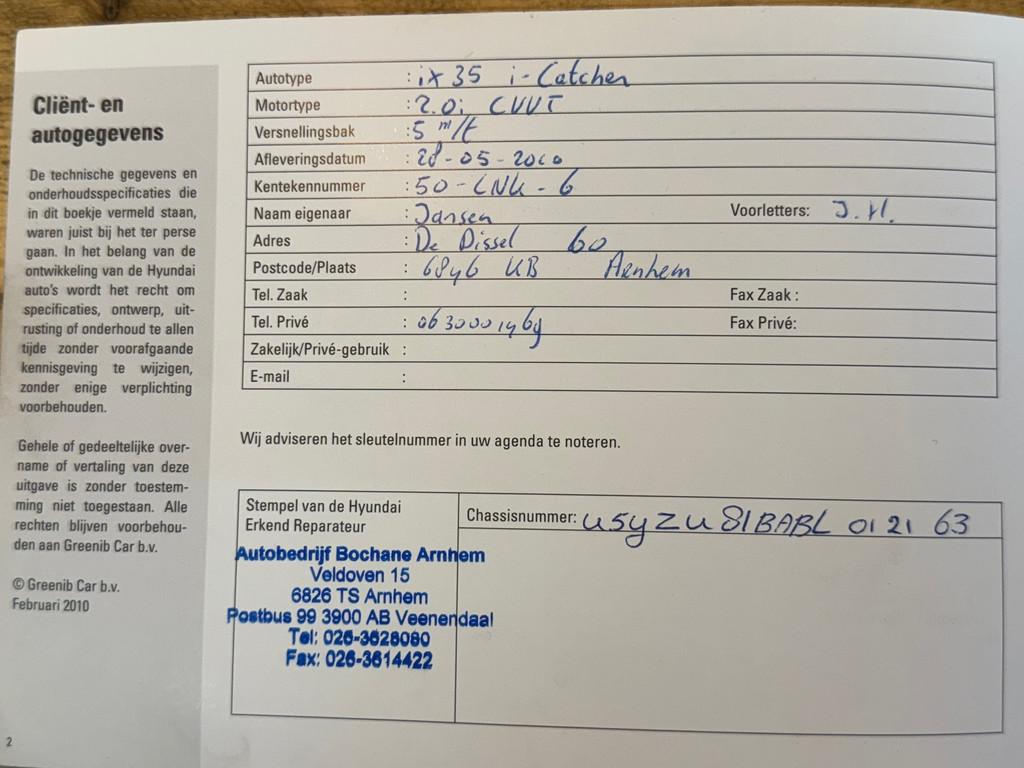 Cliënt- en
autogegevens
De technische gegevens en
onderhoudsspecificaties die
in dit boekje vermeld staan,
waren juist bij het ter perse
gaan. In het belang van de
ontwikkeling van de Hyundai
auto's wordt het recht om
specificaties, ontwerp, uit-
rusting of onderhoud te allen
tijde zonder voorafgaande
kennisgeving te wijzigen,
zonder enige verplichting
voorbehouden.
Gehele of gedeeltelijke over-
name of vertaling van deze
uitgave is zonder toestem-
ming niet toegestaan. Alle
rechten blijven voorbehou-
den aan Greenib Car b.v.
© Greenib Car b.v.
Februari 2010
2
Autotype : ix 35 i-Catcher
Motortype : 2.0i CVVT
Versnellingsbak : 5 m/t
Afleveringsdatum : 28-05-2010
Kentekennummer : 50-LNK-6
Naam eigenaar : Jansen Voorletters: J.H.
Adres : De Dissel 60
Postcode/Plaats : 6846 KB Arnhem
Tel. Zaak : Fax Zaak :
Tel. Privé : Fax Privé:
Zakelijk/Privé-gebruik :
E-mail :
Wij adviseren het sleutelnummer in uw agenda te noteren.
Stempel van de Hyundai
Erkend Reparateur
Autobedrijf Bochane Arnhem
Veldoven 15
6826 TS Arnhem
Postbus 99 3900 AB Veenendaal
Tel: 026-3628080
Fax: 026-3614422
Chassisnummer: U5YZU81BABL 01 21 63